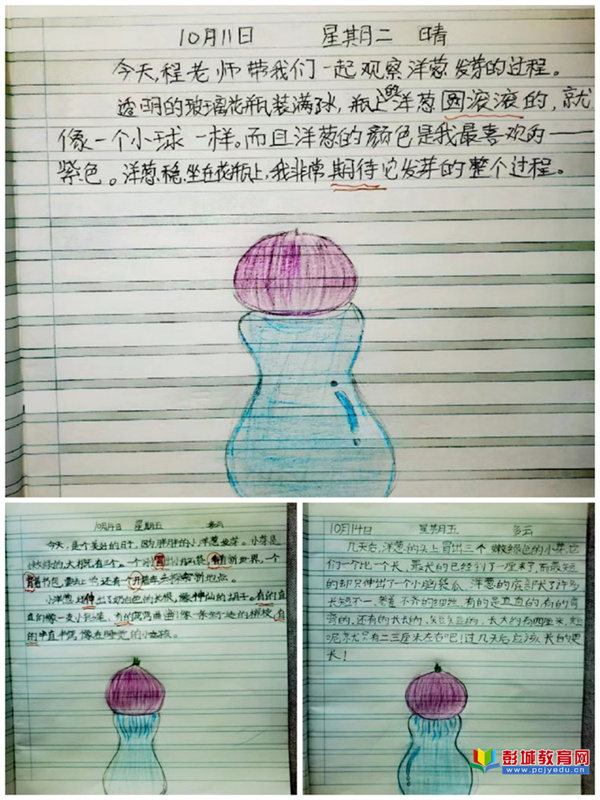 10月11日 星期二 晴
今天,程老师带我们一起观察洋葱发芽的过程。
透明的玻璃花瓶装满水,瓶上的洋葱圆滚滚的,就
像一个小球一样。而且洋葱的颜色是我最喜欢的——
紫色。洋葱稳坐在花瓶上,我非常期待它发芽的整个过程。
10月14日 星期五 多云
今天,是个美好的日子,因为胖胖的小洋葱发芽了。小芽是
嫩绿的,大概有三个。一个
书包,
小洋葱还伸出了奶白色的长根,像神仙的胡子。有的直
直的像一支小铅笔,有的弯弯曲曲
的
10月14日 星期五 多云
几天后,洋葱的头上冒出三个嫩绿色的小芽,它
们一个比一个长,最大的已经到了一厘米了,而最短
的却只伸出了个小脑袋瓜。洋葱的底部长了许多
长短不一、参差不齐的细须,有的是直直的,有的弯
弯的,还有的长长的,
呢,尔尤只有二三厘米左右吧!过几天后应该长的更
长!
彭城教育网
www.pcjyedu.cn